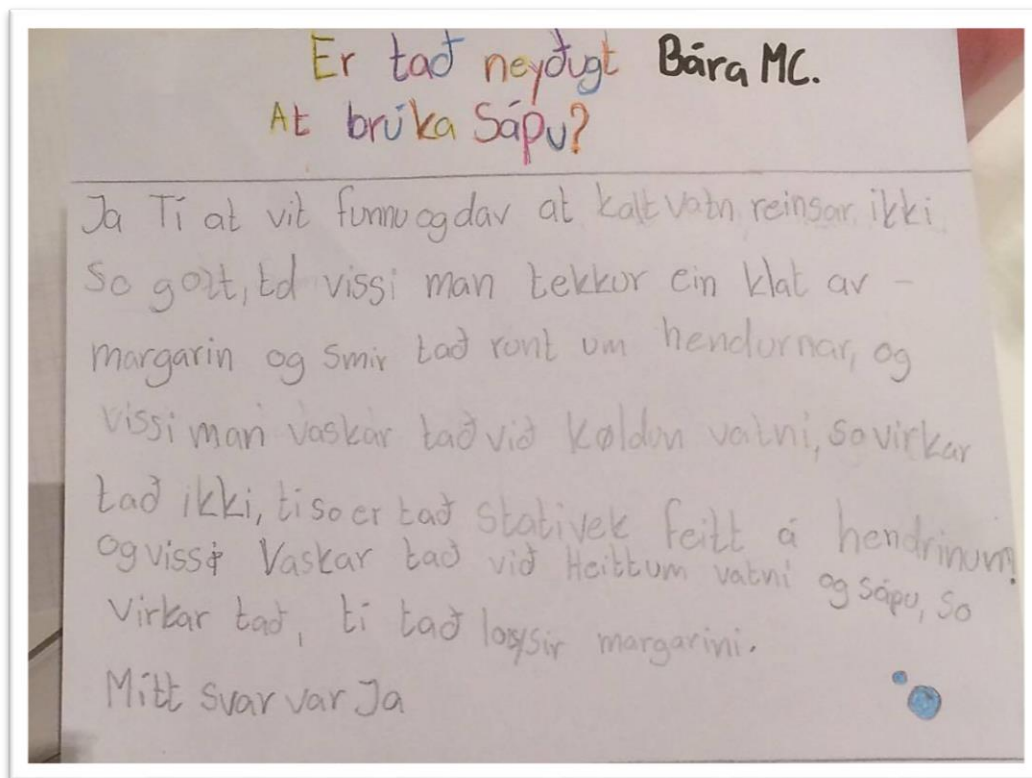 Er tað neyðugt Bára MC.
At brúka Sápu?
Ja Tí at vit funnu og dav at kalt vatn reinsar ikki
So gott, td vissi man tekkur ein klat av -
margarin og smir tað runt um hendurnar, og
vissi man vaskar tað við køldun vatni, so virkar
tað ikki, ti so er tað stativek feitt á hendrinum!
og vissi Vaskar tað við Heittum vatni og sápu, so
virkar tað, ti tað loysir margarini.
Mitt svar var Ja